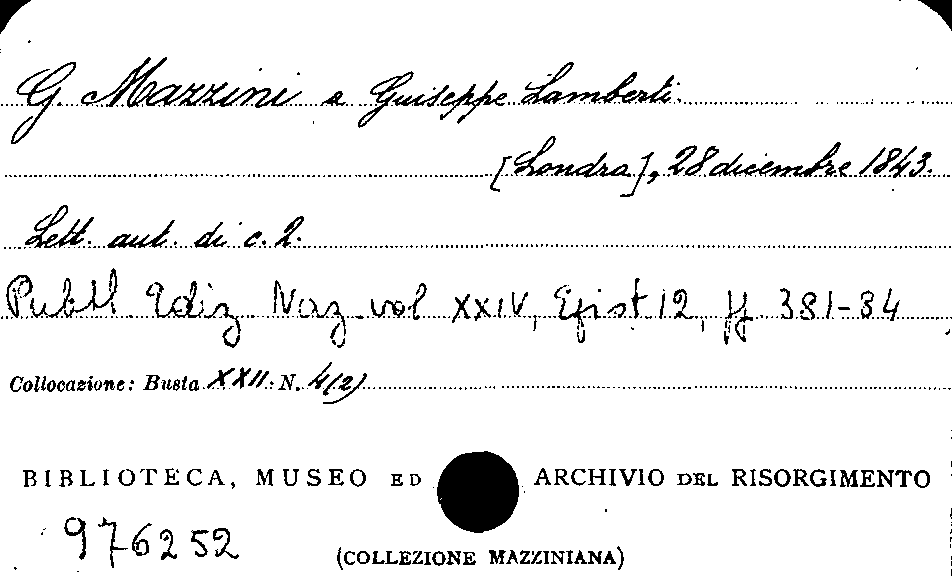 G. Mazzini a Giuseppe Lamberti.
[Londra], 28 dicembre 1843.
Lett. aut. di c. 2.
Pubbl Ediz Naz vol XXIV, Epist 12, ff 381-84
Collocazione: Busta XXII. N. 4(2)
BIBLIOTECA, MUSEO ED ARCHIVIO DEL RISORGIMENTO
976252
(COLLEZIONE MAZZINIANA)